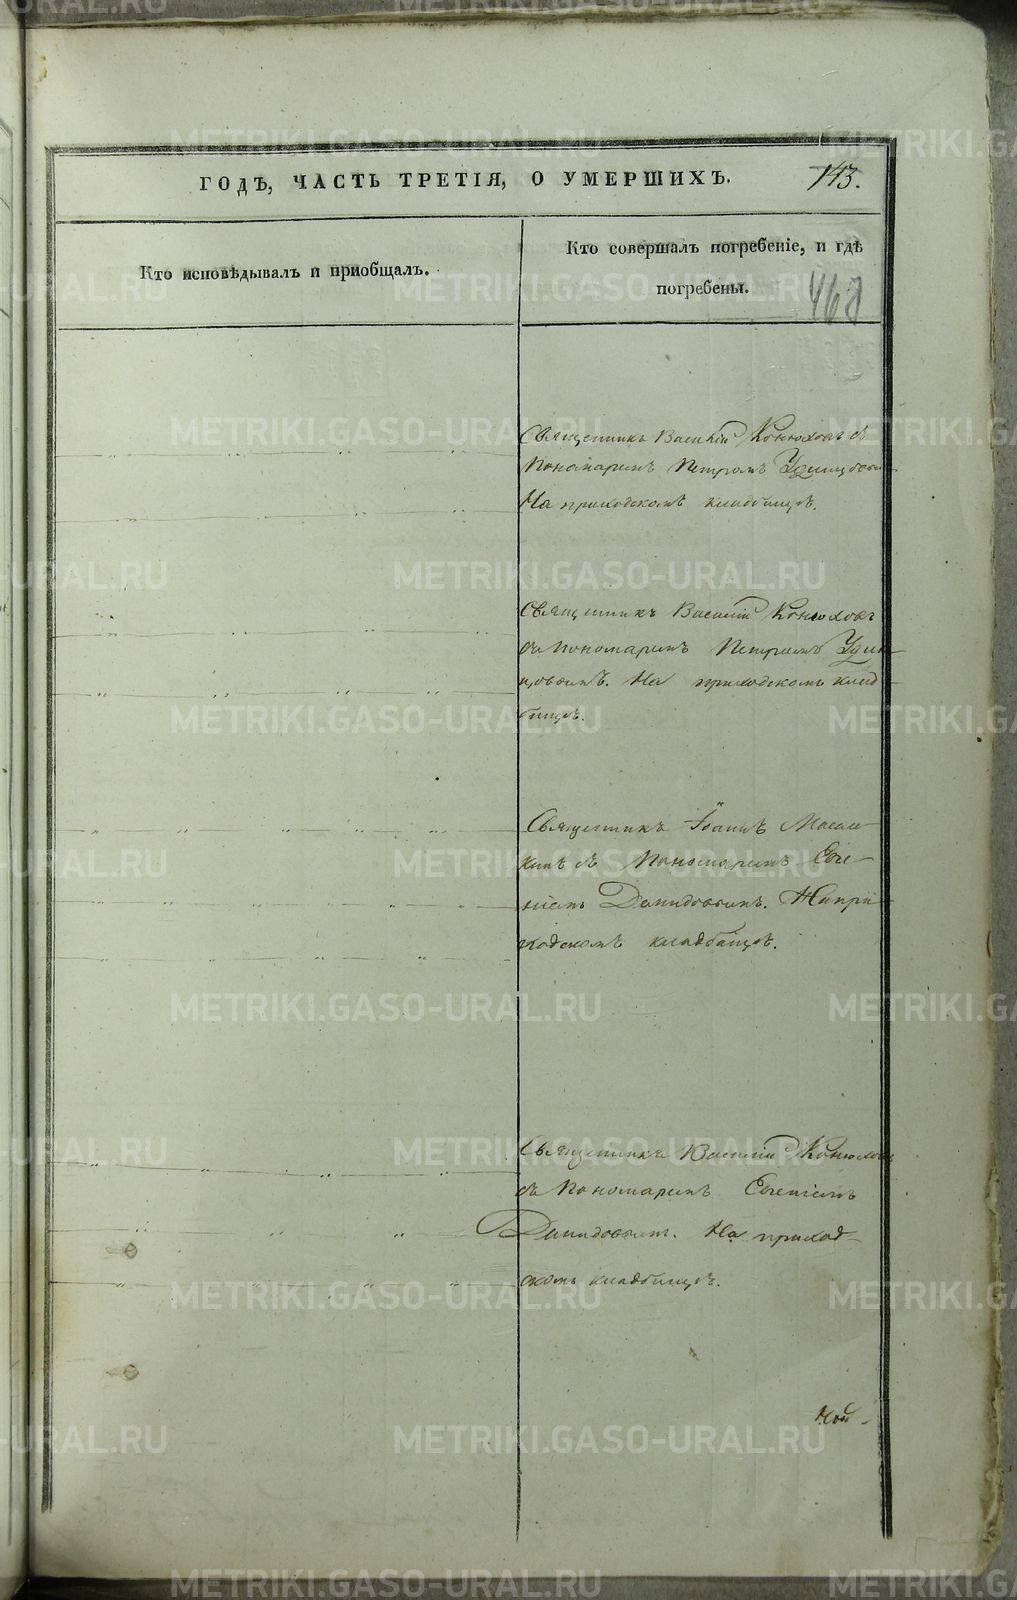 ГОДЪ, ЧАСТЬ ТРЕТІЯ, О УМЕРШИХЪ.
143.
Кто исповѣдывалъ и пріобщалъ.
Кто совершалъ погребеніе, и гдѣ
погребены.
468
Священникъ Василій Конюховъ съ
Пономаремъ Петромъ Удинцовым
На приходскомъ кладбищѣ.
Священникъ Василій Конюховъ
съ Пономаремъ Петромъ Удин-
цовымъ. На приходскомъ клад-
бищѣ.
Священникъ Іоаннъ
съ Пономаремъ Евге-
ніемъ Демидовымъ. На при-
ходскомъ кладбищѣ.
Священникъ Василій Конюховъ
съ Пономаремъ Евгеніемъ
Демидовымъ. На приход-
скомъ кладбищѣ.
METRIKI.GASO-URAL.RU